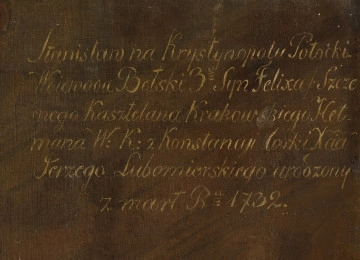 Stanisław na Krystynopolu Potocki
Woiewoda Bełski 3ci Syn Felixa Szczę
snego Kasztelana Krakowskiego Het
mana W: K: z Konstancyi Corki Xcia
Jerzego Lubomierskiego urodzony
zmarł R 1732.